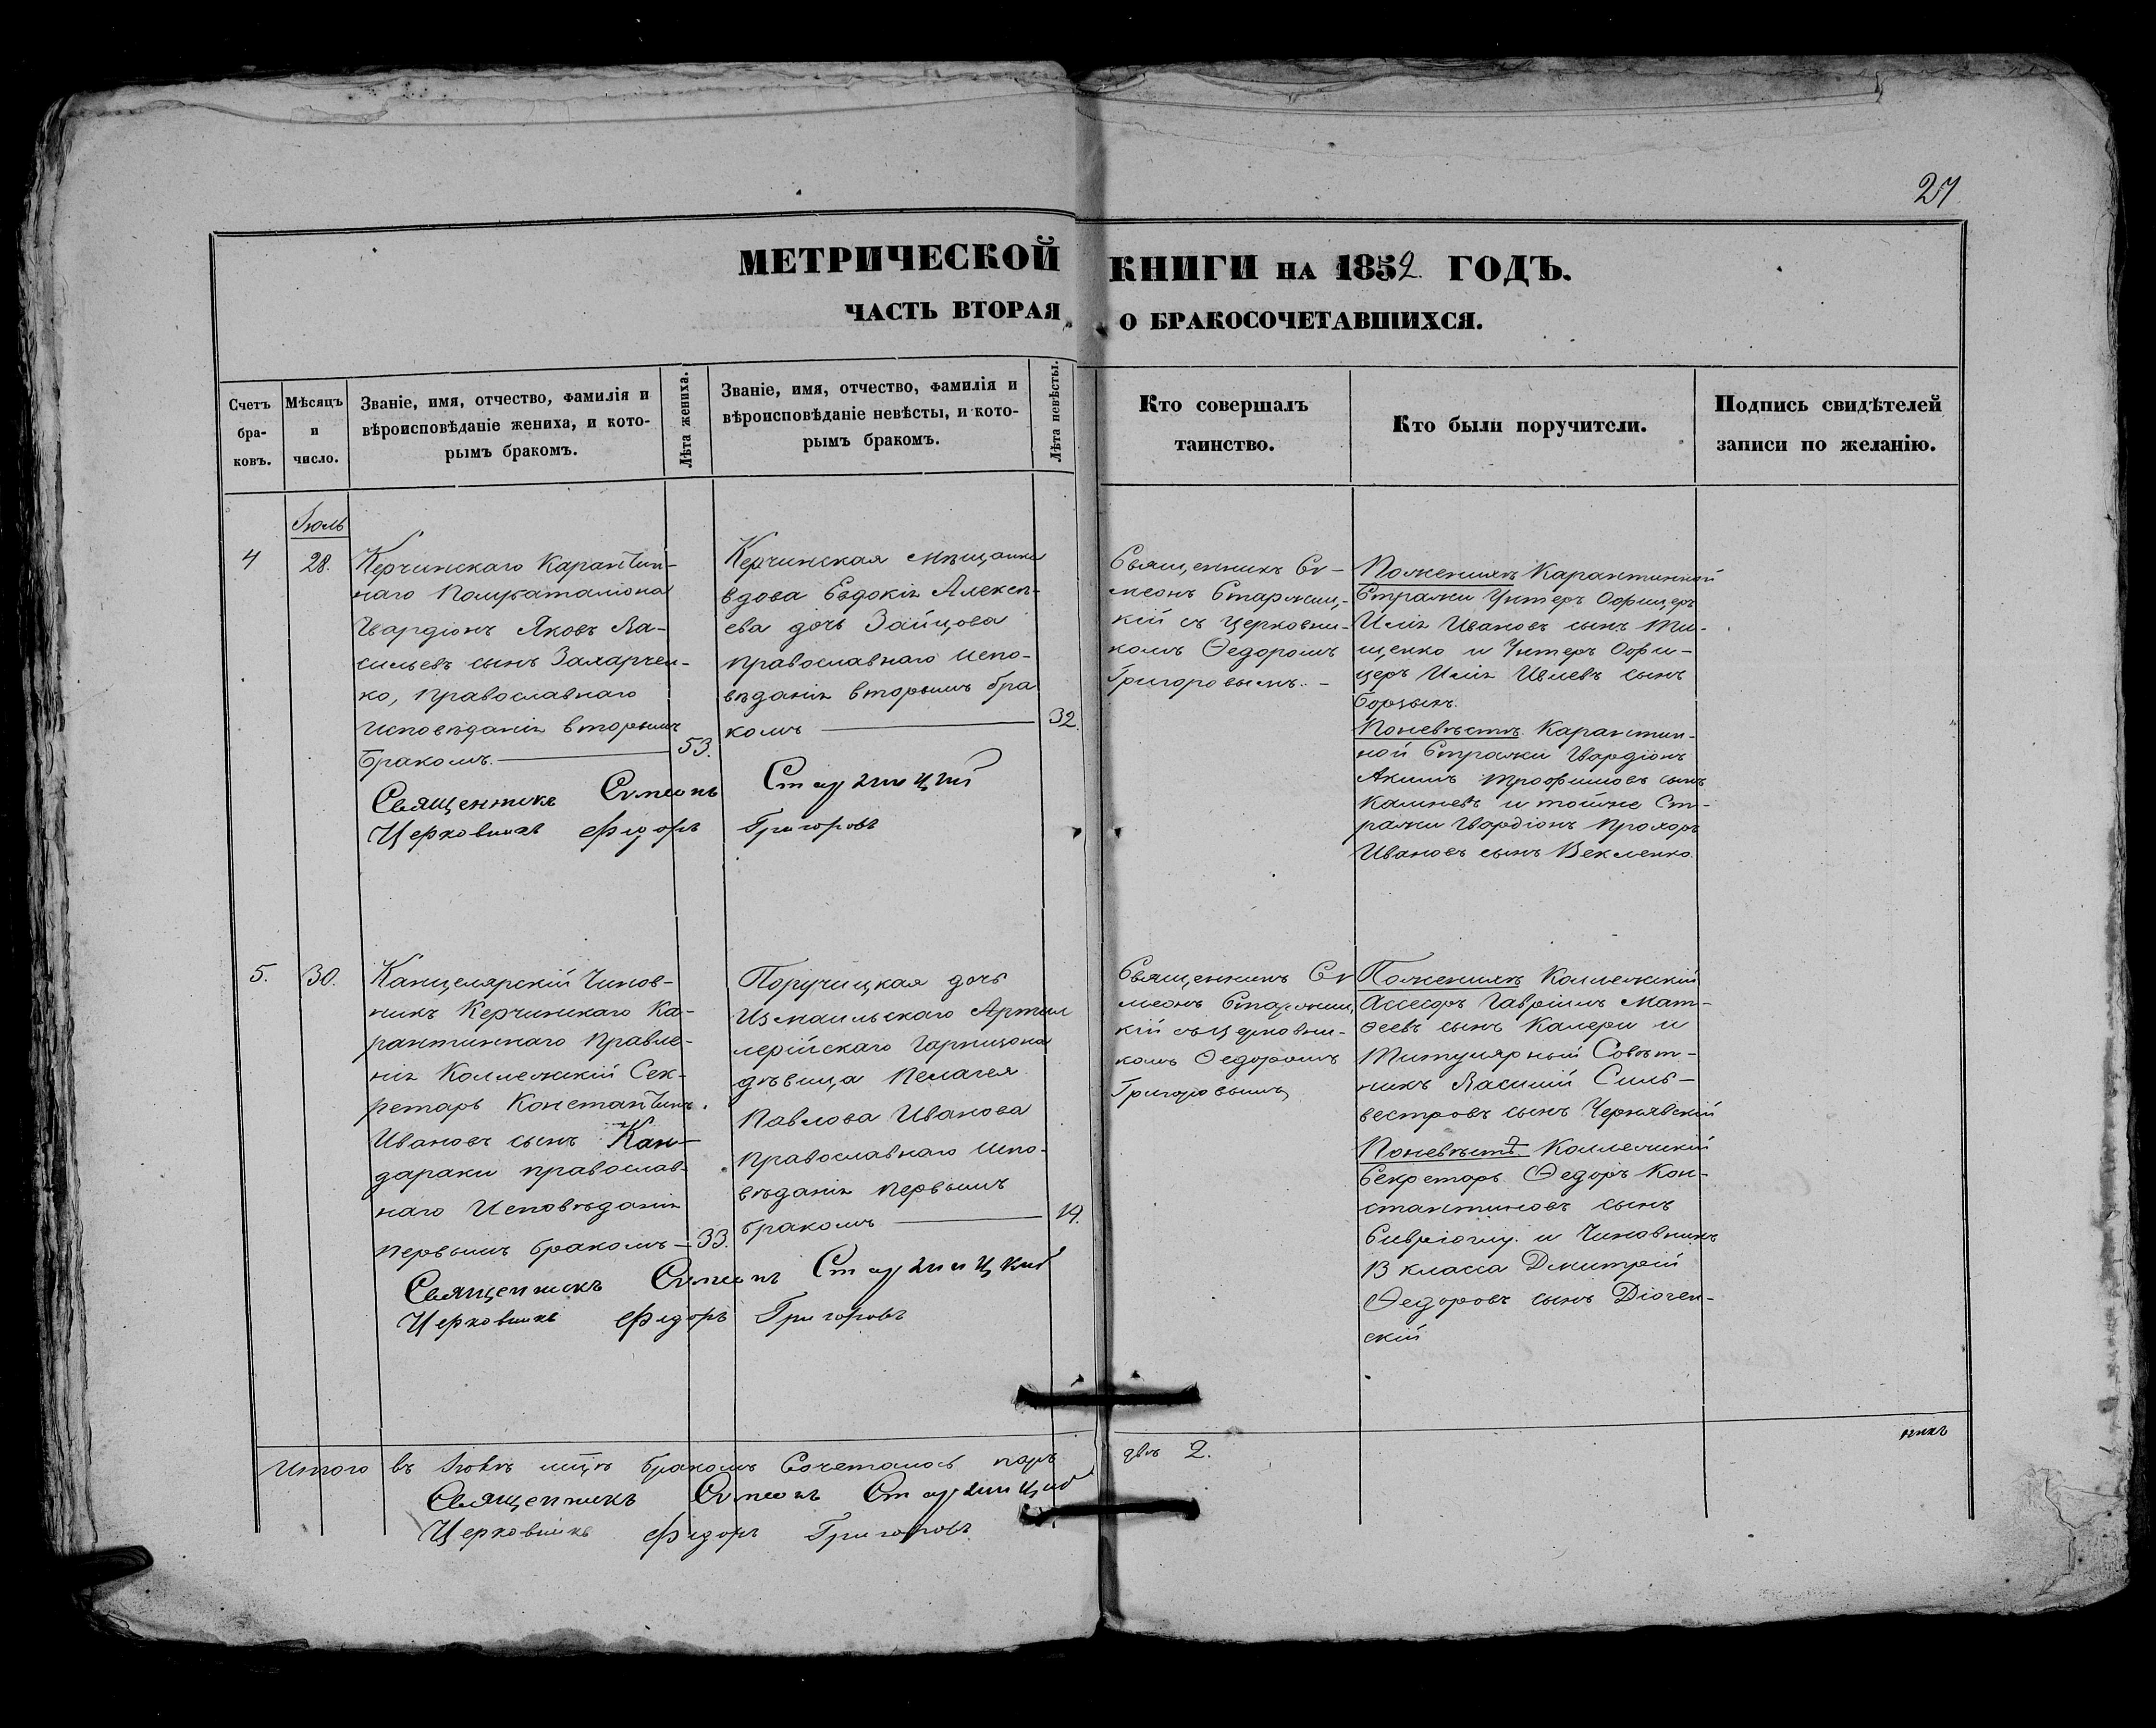 27
МЕТРИЧЕСКОЙ КНИГИ НА 1852 ГОДЪ.
ЧАСТЬ ВТОРАЯ О БРАКОСОЧЕТАВШИХСЯ.
Счетъ
бра-
ковъ.
Мѣсяцъ
и
число.
Званіе, имя, отчество, фамилія и
вѣроисповѣданіе жениха, и кото-
рымъ бракомъ.
Лѣта жениха.
Званіе, имя, отчество, фамилія и
вѣроисповѣданіе невѣсты, и кото-
рымъ бракомъ.
Лѣта невѣсты.
Кто совершалъ
таинство.
Кто были поручители.
Подпись свидѣтелей
записи по желанію.
Іюль
4
28.
Керчинскаго Карантин-
наго Полубаталіона
Гвардіонъ Яковъ Ва-
сильевъ сынъ Захарчен-
ко, православнаго
исповѣданія вторымъ
бракомъ.
53.
Керчинская мѣщанка
вдова Евдокія Алексѣ-
ева дочь Зайцова
православнаго испо-
вѣданія вторымъ бра
комъ
32
Священникъ Си-
меонъ Старжиц-
кій съ церковни-
комъ Ѳедоромъ
Григоровымъ.
Поженихѣ Карантинной
Стражи Унтеръ Офицеръ
Илія Ивановъ сынъ Ти-
щенко и Унтеръ Офи-
церъ Илія Ивлевъ сынъ
Борзынъ.
Поневѣстѣ Карантин-
ной Стражи Гвардіонъ
Акимъ Трофимовъ сынъ
Калиневъ и тойже Ст-
ражи Гвардіонъ Прохоръ
Ивановъ сынъ Векленко.
Священникъ Симеонъ Старжицкий
Церковникъ Федоръ Григоровъ
5.
30.
Канцелярскій Чинов-
никъ Керчинскаго Ка-
рантиннаго Правле-
нія Коллежскій Сек-
ретарь Константинъ
Ивановъ сынъ Кан-
дараки православ-
наго Исповѣданія
первымъ бракомъ
33.
Поручицкая дочь
Измаильскаго Артил
лерійскаго Гарнизона
дѣвица Пелагея
Павлова Иванова
православнаго испо-
вѣданія первымъ
бракомъ
19.
Священникъ Си
меонъ Старжиц
кій съ церковни-
комъ Ѳедоромъ
Григоровымъ
Поженихѣ Коллежскій
Ассесоръ Гавріилъ Мат-
ѳеевъ сынъ Калери и
Титулярный Совѣт-
никъ Василій Силь-
вестровъ сынъ Чернявскій
Поневѣстѣ Коллежскій
Секретарь Ѳедоръ Кон-
стантиновъ сынъ
и Чиновникъ
13 класса Дмитрій
Ѳедоровъ сынъ Діоген-
скій
Священникъ Симеонъ Старжицкий
Церковникъ Федоръ Григоровъ
Итого въ Іюлѣ мцѣ бракомъ Сочеталось паръ двѣ 2.
Священникъ Симеонъ Старжицкий
Церковникъ Федоръ Григоровъ